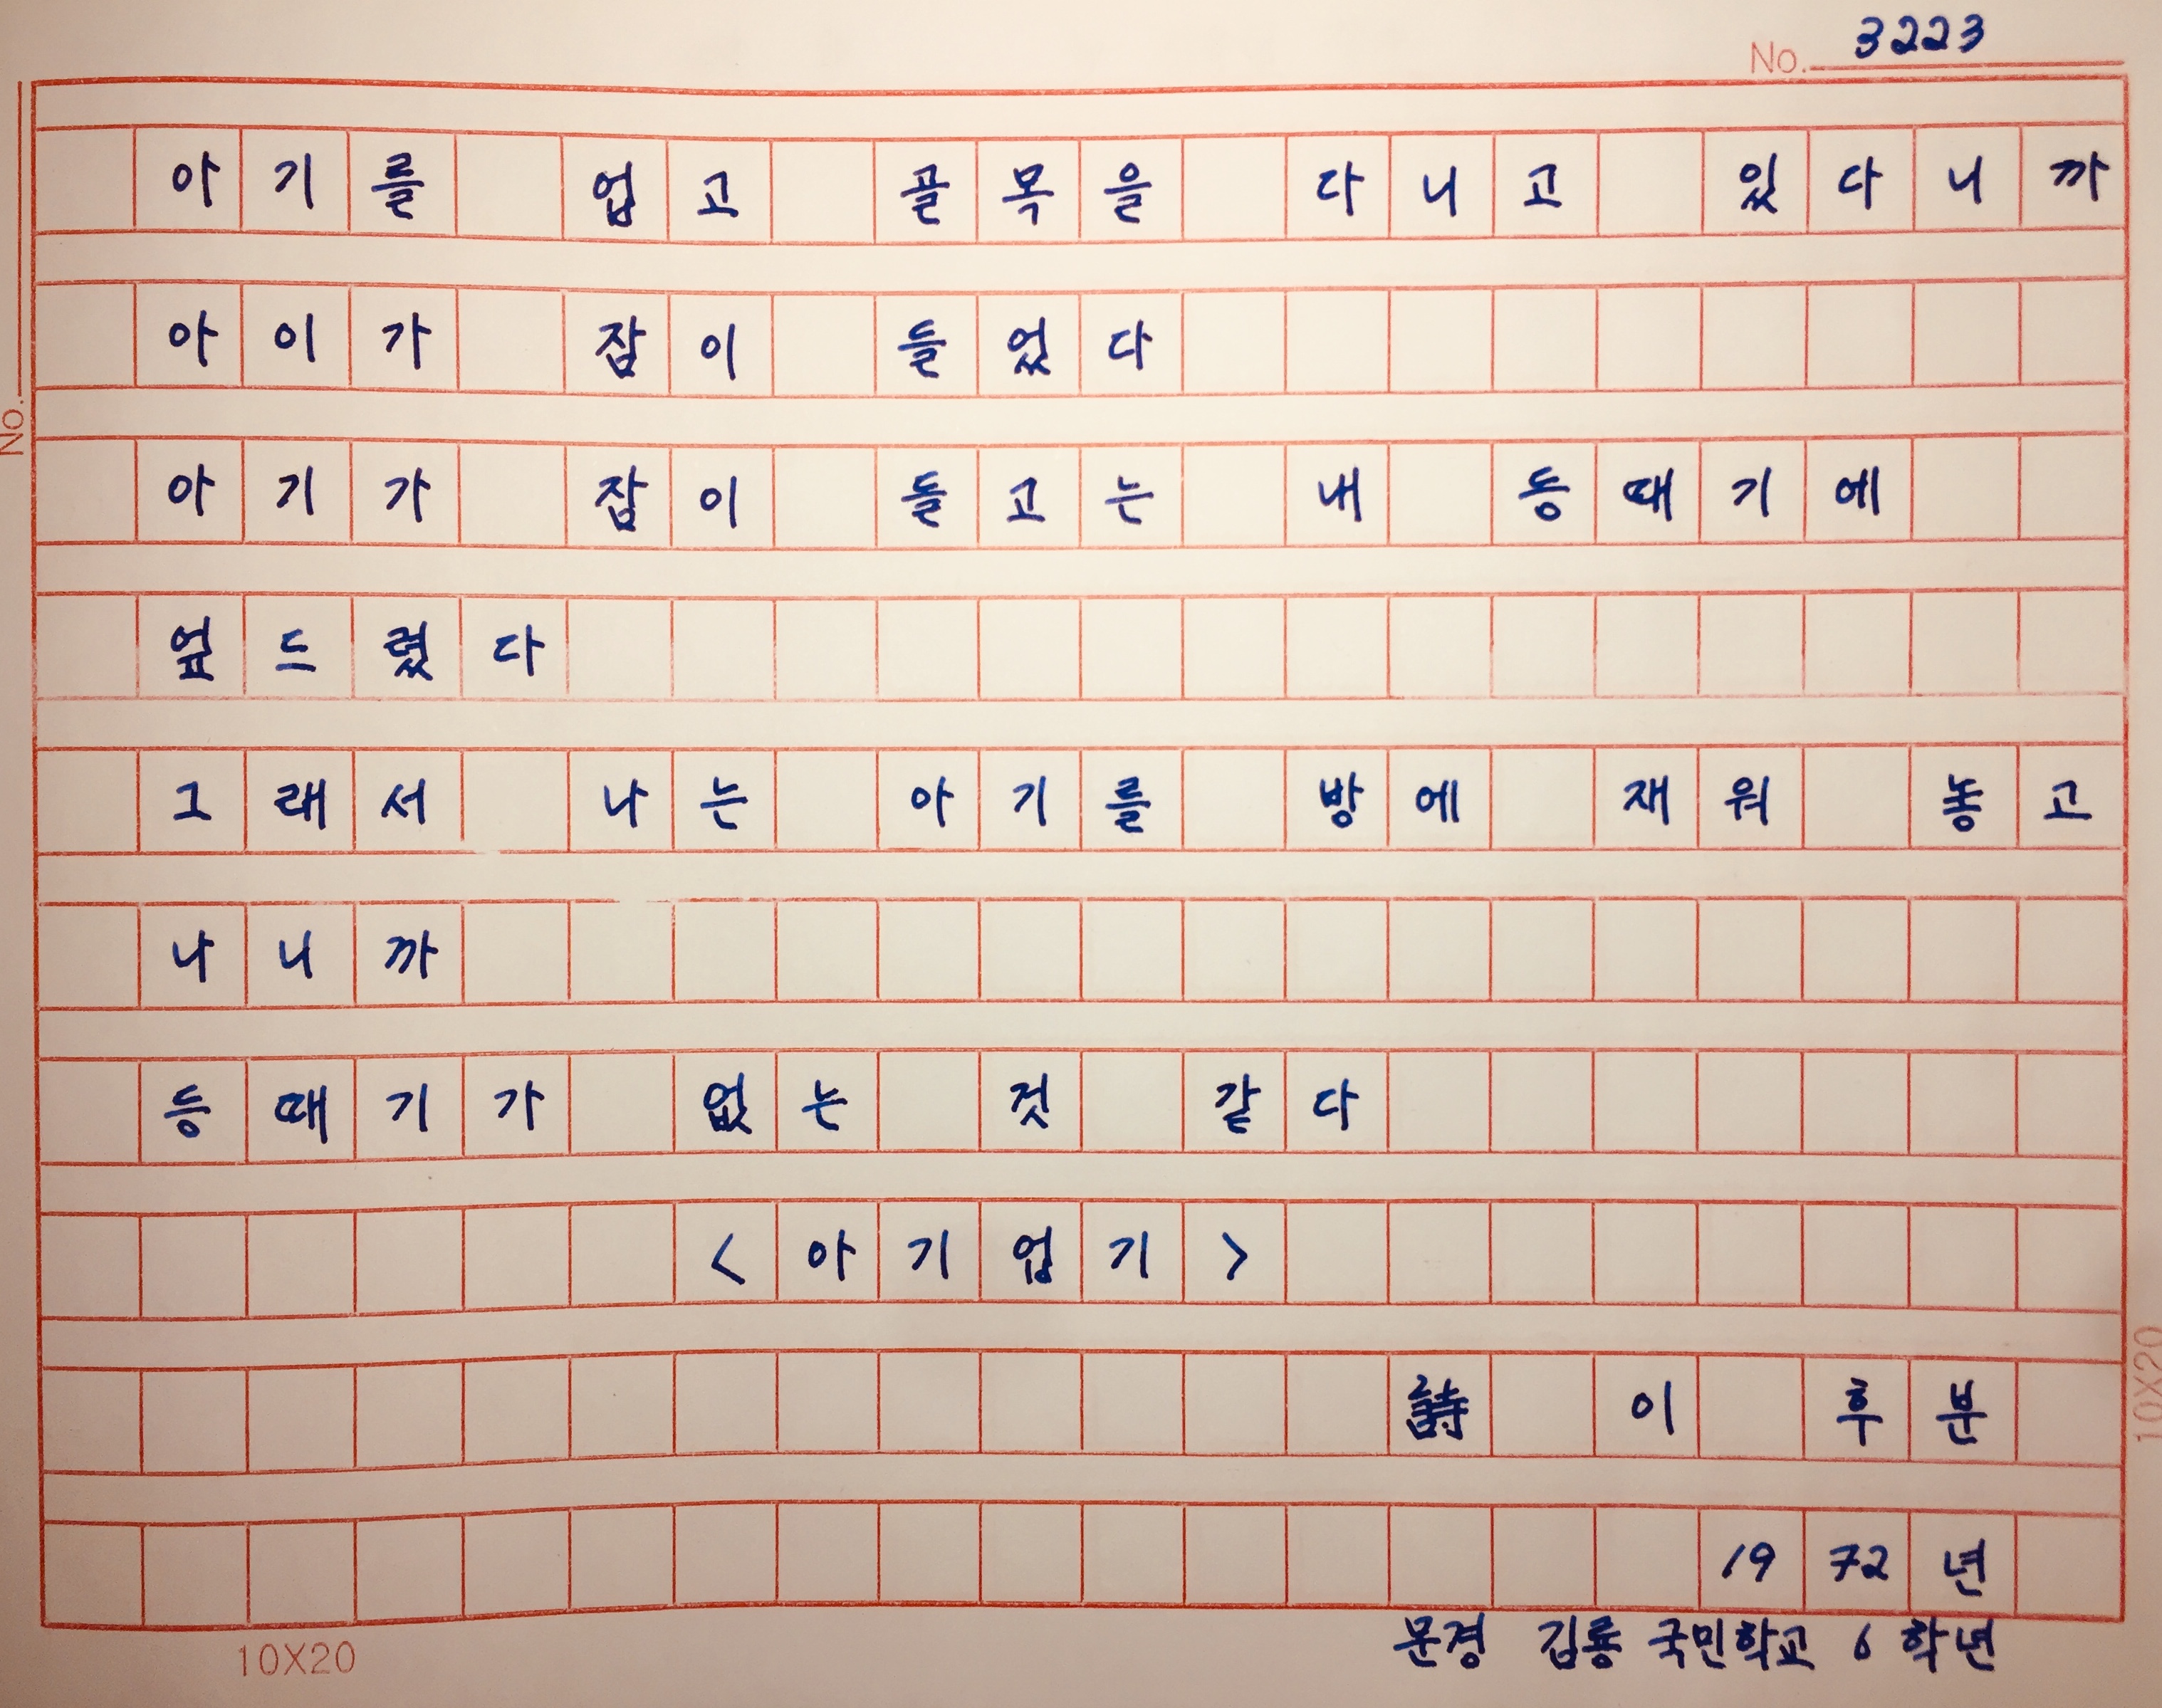 No. 3223
아기를 업고 골목을 다니고 있다니까
아이가 잠이 들었다
아기가 잠이 들고는 내 등때기에
엎드렸다
그래서 나는 아기를 방에 재워 놓고
나니까
등때기가 없는 것 같다
<아기업기>
詩 이 후분
1972년
문경 김룡 국민학교 6학년
10X20
No.
10X20